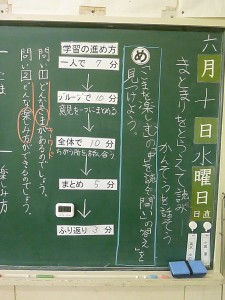 六月十日水曜日
日直
まとまりをとらえて読み
かんそうを話そう
め
「こまを楽しむ」の中を読み、問いの答えを
見つけよう。
学習の進め方
一人で 7分
グループで 10分
意見を一つにまとめる
全体で 10分
ちがう所を話し合う
まとめ 5分
ふり返り 3分
問い1 どんなこまがあるのでしょう。
問い2 どんな楽しみ方ができるのでしょう。
こま
楽しみ方